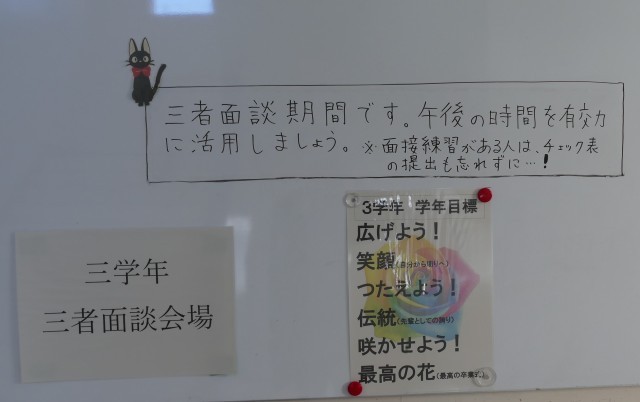 三者面談期間です。午後の時間を有効
に活用しましょう。※面接練習がある人は、チェック表
の提出も忘れずに…!
三学年
三者面談会場
3学年 学年目標
広げよう!
笑顔(自分から周りへ)
つたえよう!
伝統(先輩としての誇り)
咲かせよう!
最高の花(最高の卒業式)